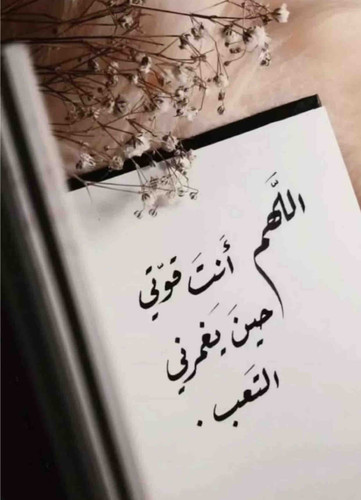 اللَّهم أَنتَ قوّتي
حينَ يَغمرني
التعَب .